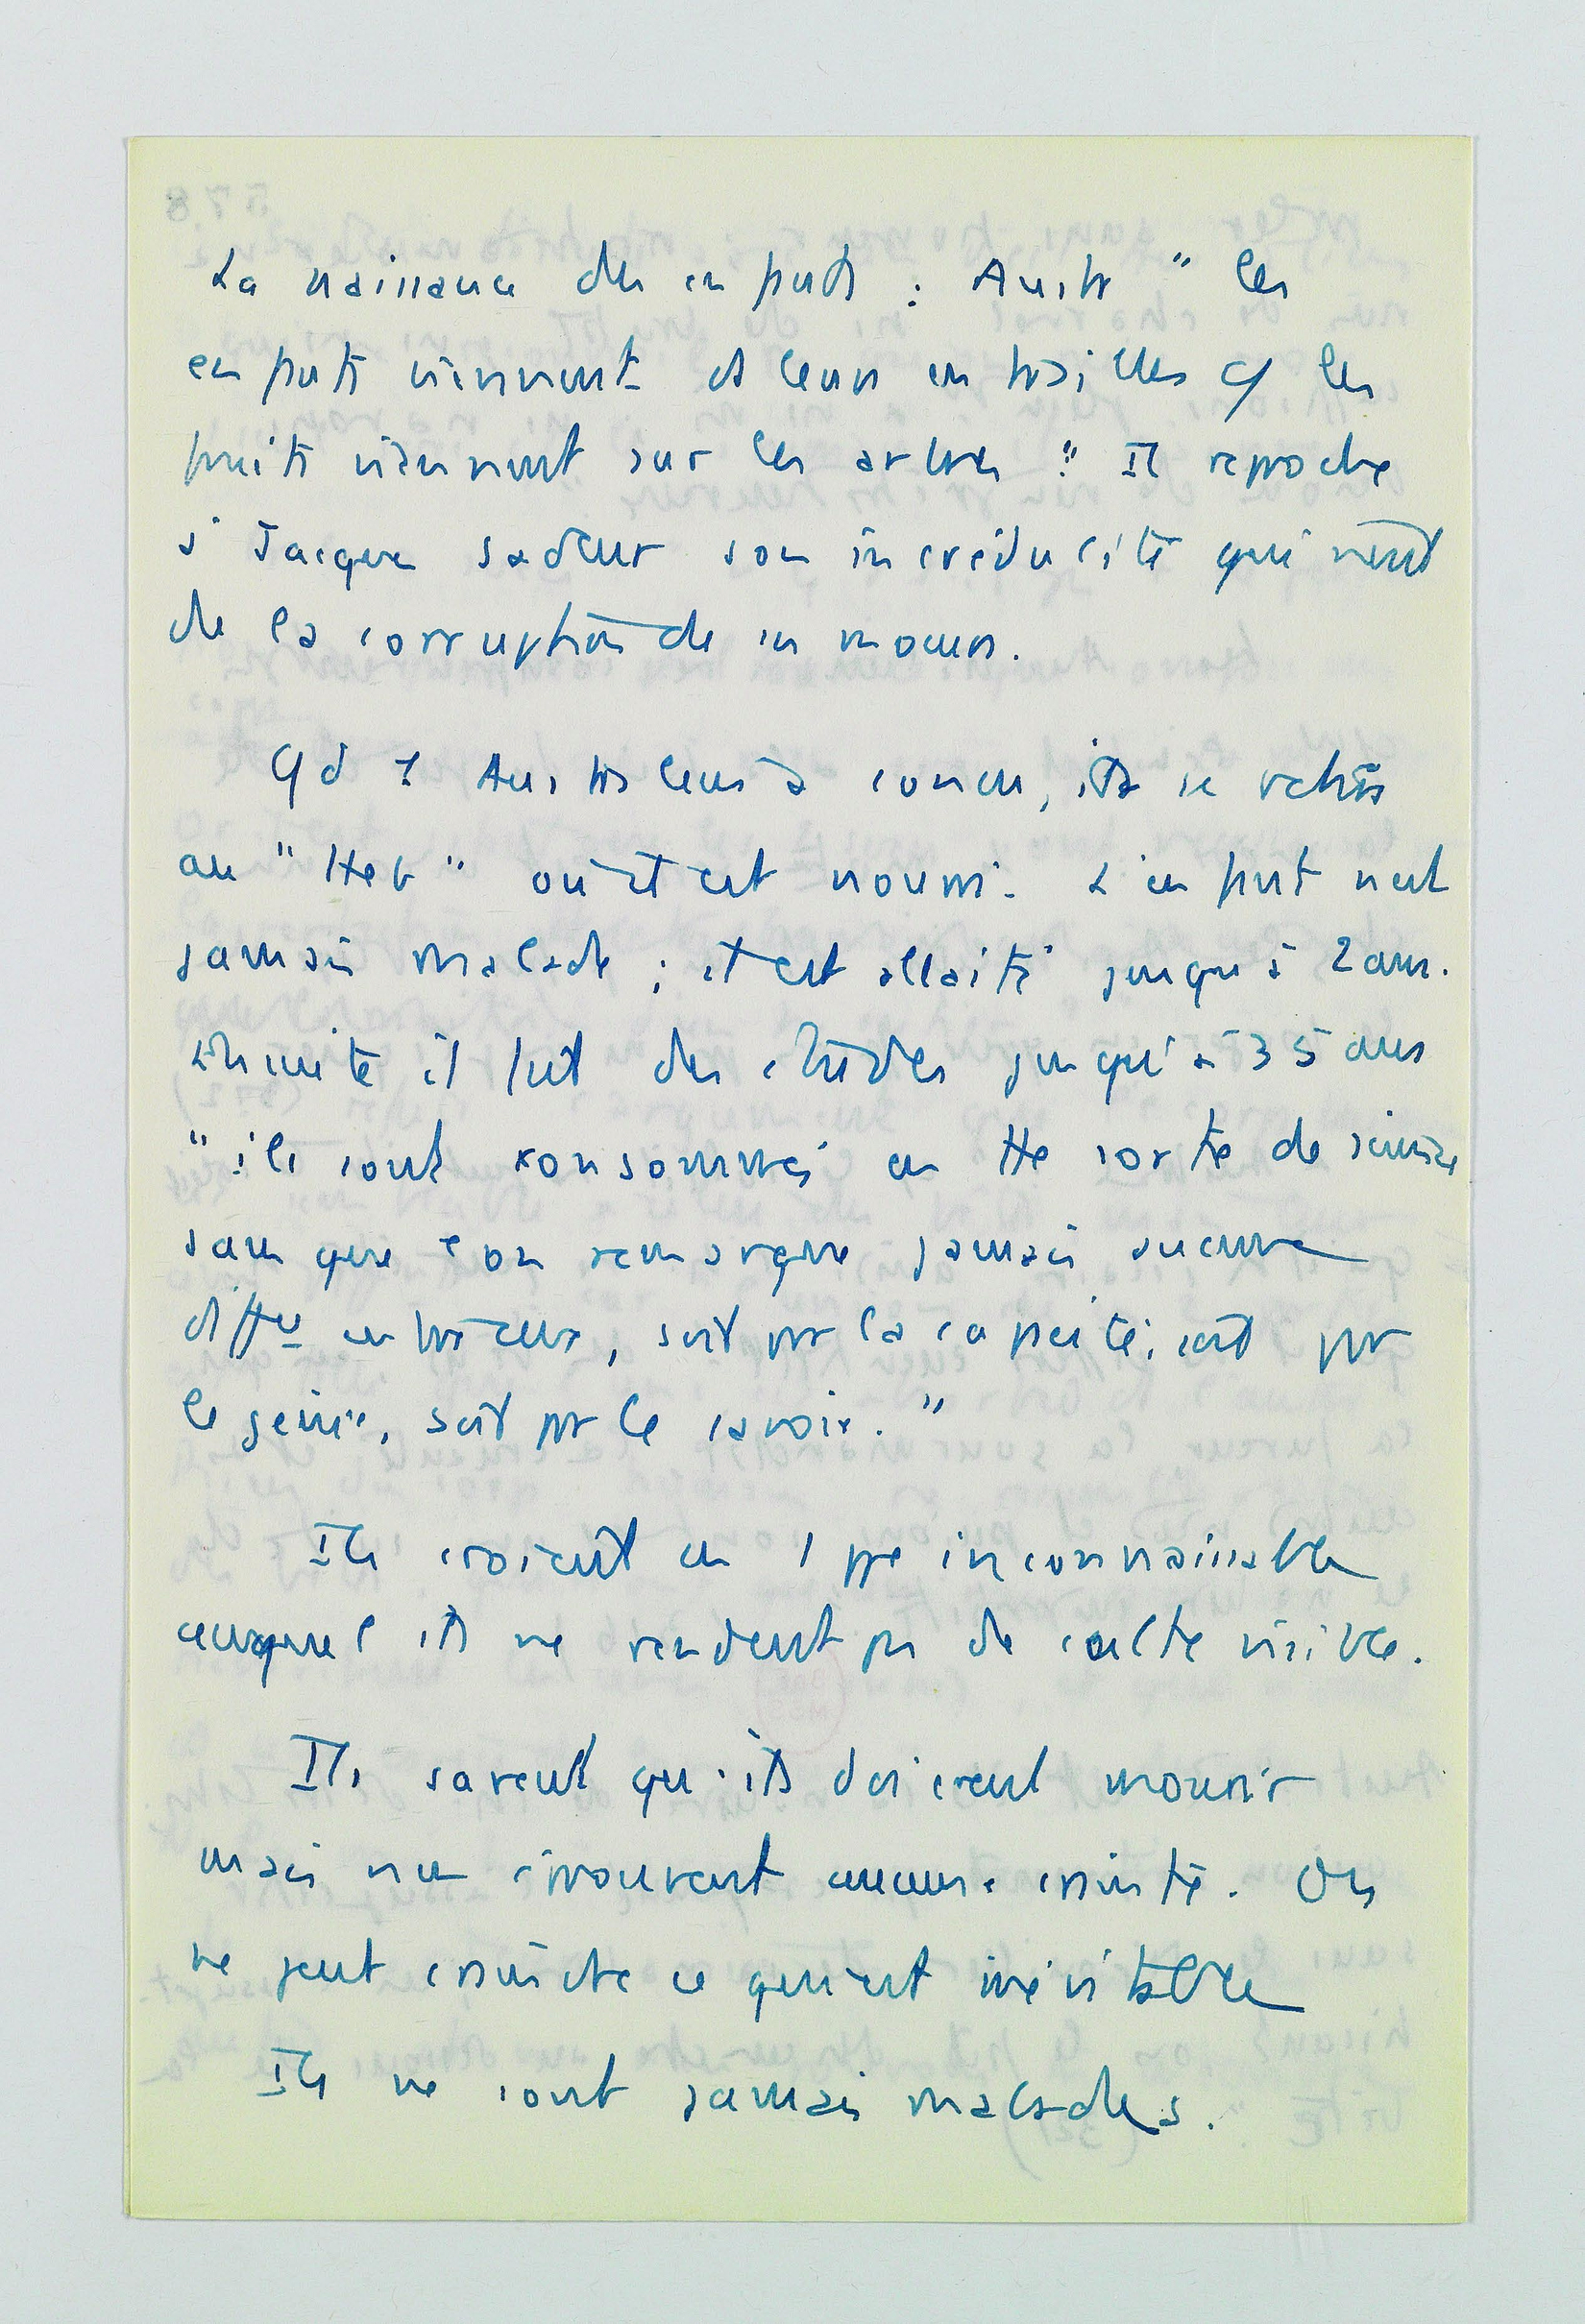 La naissance des enfants : Austr " les
enfants viennent ds leurs entrailles c/ les
fruits viennent sur les arbres ". Il reproche
à Jacques Sadeur son incrédulité qui vient
de la corruption de ses moeurs.
Qd 1 Australien a concu, il se retire
au " Heb " où il est nourri. L'enfant n'est
jamais malade ; il est allaité jusqu'à 2 ans.
Ensuite il fait des études jusqu'à 35 ans
" ils sont consommés en tte sorte de science
sans que l'on remarque jamais aucune
diffce entre eux, soit pr la capacité, soit pr
le génie, soit pr le savoir. "
Ils croient en 1 ppe inconnaissable
auquel ils ne rendent pas de culte visible.
Ils savent qu'ils doivent mourir
mais n'en éprouvent aucune crainte. On
ne peut craindre ce qui est inévitable
Ils ne sont jamais malades.